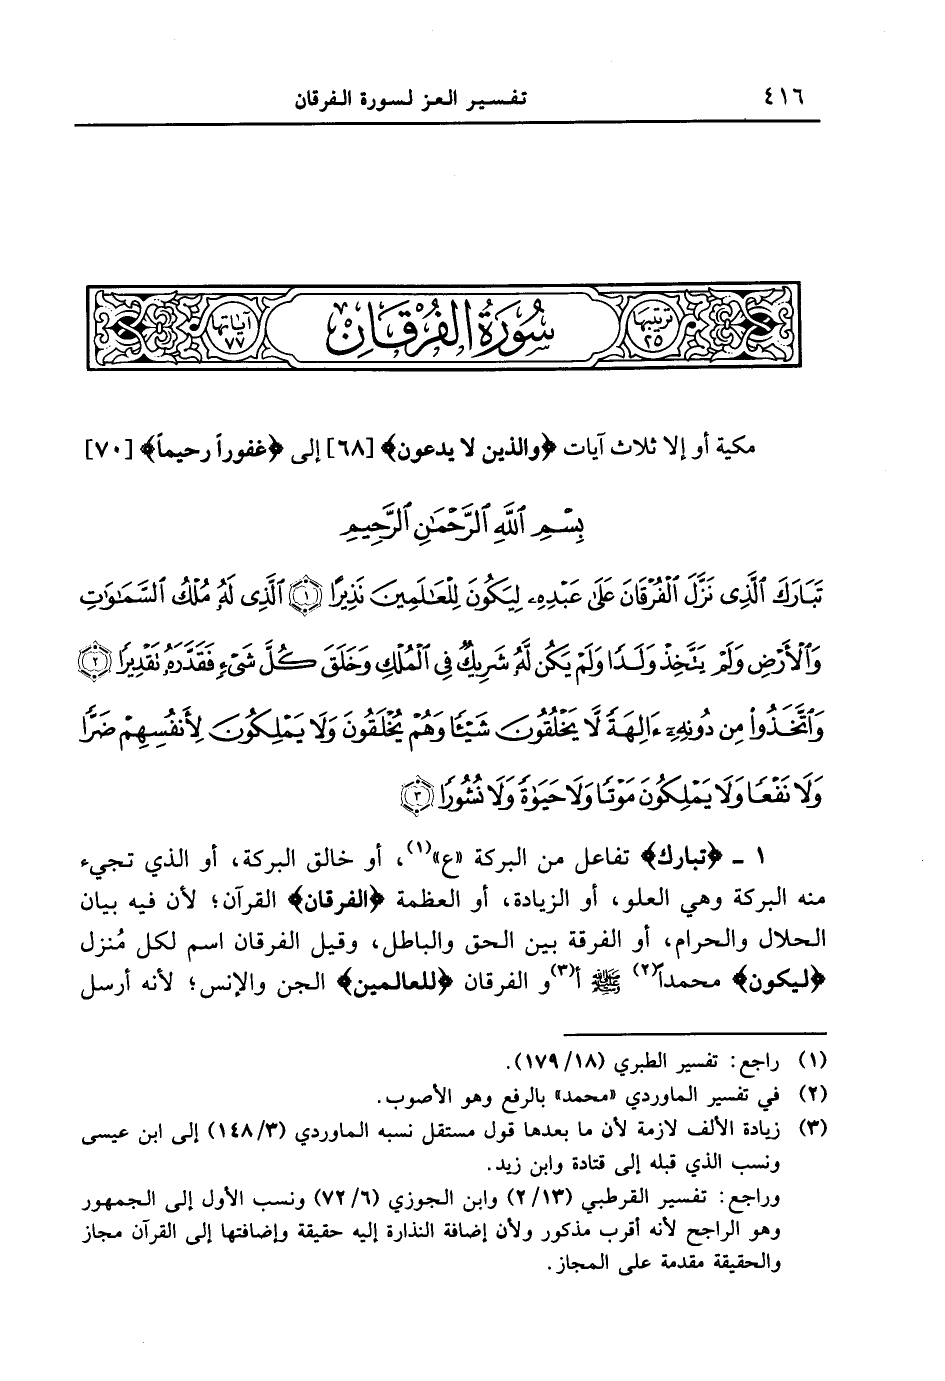 ٤١٦
تفسير العز لسورة الفرقان
ترتيبها ٢٥
سُورَةُ الفُرْقَانِ
آياتها ٧٧
مكية أو إلا ثلاث آيات ﴿والذين لا يدعون﴾ [٦٨] إلى ﴿غفوراً رحيماً﴾ [٧٠]
بِسْمِ ٱللَّهِ ٱلرَّحْمَٰنِ ٱلرَّحِيمِ
تَبَارَكَ ٱلَّذِى نَزَّلَ ٱلْفُرْقَانَ عَلَىٰ عَبْدِهِۦ لِيَكُونَ لِلْعَٰلَمِينَ نَذِيرًا ١ ٱلَّذِى لَهُۥ مُلْكُ ٱلسَّمَٰوَٰتِ
وَٱلْأَرْضِ وَلَمْ يَتَّخِذْ وَلَدًا وَلَمْ يَكُن لَّهُۥ شَرِيكٌ فِى ٱلْمُلْكِ وَخَلَقَ كُلَّ شَىْءٍ فَقَدَّرَهُۥ تَقْدِيرًا ٢
وَٱتَّخَذُوا۟ مِن دُونِهِۦٓ ءَالِهَةً لَّا يَخْلُقُونَ شَيْـًٔا وَهُمْ يُخْلَقُونَ وَلَا يَمْلِكُونَ لِأَنفُسِهِمْ ضَرًّا
وَلَا نَفْعًا وَلَا يَمْلِكُونَ مَوْتًا وَلَا حَيَوٰةً وَلَا نُشُورًا ٣
١ ـ ﴿تبارك﴾ تفاعل من البركة «ع»(١)، أو خالق البركة، أو الذي تجيء
منه البركة وهي العلو، أو الزيادة، أو العظمة ﴿الفرقان﴾ القرآن؛ لأن فيه بيان
الحلال والحرام، أو الفرقة بين الحق والباطل، وقيل الفرقان اسم لكل مُنزل
﴿ليكون﴾ محمداً(٢) ﷺ أ(٣)و الفرقان ﴿للعالمين﴾ الجن والإنس؛ لأنه أرسل
(١) راجع: تفسير الطبري (١٧٩/١٨).
(٢) في تفسير الماوردي «محمد» بالرفع وهو الأصوب.
(٣) زيادة الألف لازمة لأن ما بعدها قول مستقل نسبه الماوردي (١٤٨/٣) إلى ابن عيسى
ونسب الذي قبله إلى قتادة وابن زيد.
وراجع: تفسير القرطبي (٢/١٣) وابن الجوزي (٧٢/٦) ونسب الأول إلى الجمهور
وهو الراجح لأنه أقرب مذكور ولأن إضافة النذارة إليه حقيقة وإضافتها إلى القرآن مجاز
والحقيقة مقدمة على المجاز.